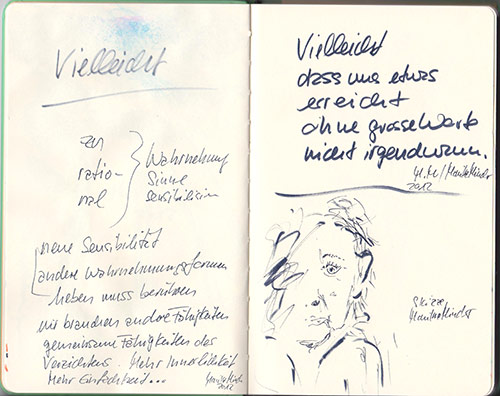 Vielleicht
an
ratio-
nal
Wahrnehmung
Sinne
sensibilisieren
neue Sensibilität
andere Wahrnehmungsformen
Leben muss berühren
wir brauchen andere Fähigkeiten
gemeinsam Fähigkeiten des
Verzichtens. Mehr Innerlichkeit
Mehr Einfachheit...
2012
Vielleicht
dass uns etwas
erreicht
ohne grosse Worte
nicht irgendwann.
M.M/
2012
Skizze